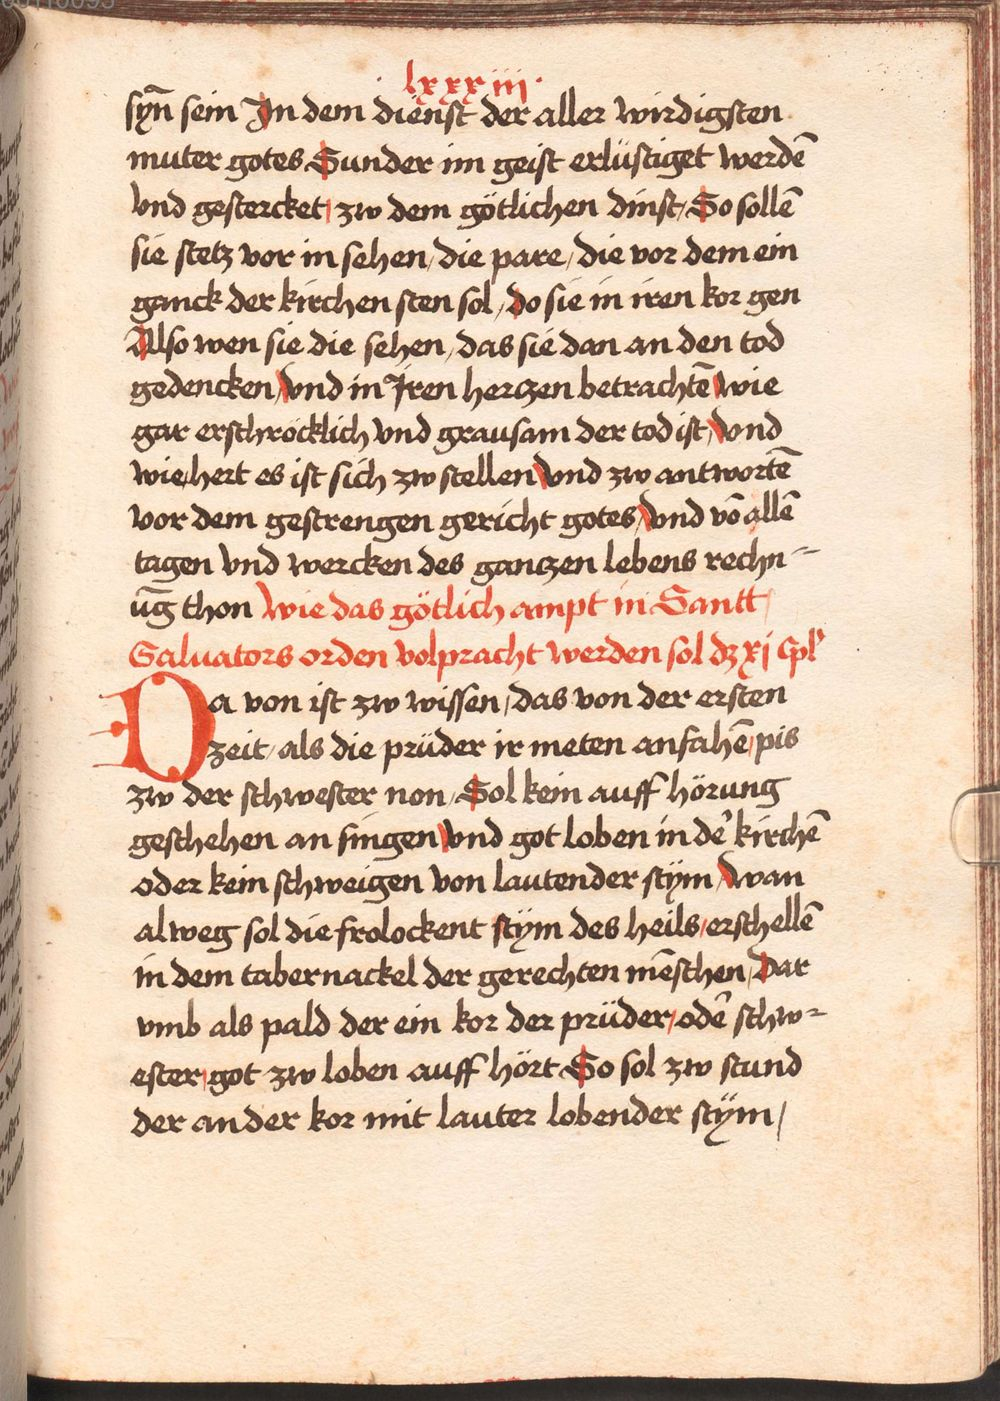 lxxxiii·
syn̄ sein In dem dienst der aller wirdigsten
muter gotes Sunder im geist erlüstiget werdē
vnd gestercket / zw dem götlichen dinst / So sollē
sie stetz vor in sehen / die pare / die vor dem ein
ganck der kirchen sten sol / do sie in iren kor gen
Also wen sie die sehen / das sie dan an den tod
gedencken / vnd in Jren herczen betrachtē wie
gar erschröcklich vnd grausam der tod ist / vnd
wie hert es ist sich zw stellen vnd zw antwortē
vor dem gestrengen gericht gotes / vnd vō allē
tagen vnd wercken des ganczen lebens rechn-
ūg thon wie das götlich ampt in Santt /
Saluators orden volpracht werden sol dz xj cpl'
Da von ist zw wissen / das von der ersten
zeit / als die prüder ir meten anfahē / pis
zw der schwester non / Sol kein auff hörung
geschehen an singen vnd got loben in de' kirchē
oder kein schweigen von lautender stÿm / wan
alweg sol die frolockent stÿm des heils / erschellē
in dem tabernackel der gerechten mēschen / Dar
vmb als pald der ein kor der prüder / odē schw-
ester / got zw loben auff hört So sol zw stund
der ander kor mit lauter lobender stÿm /